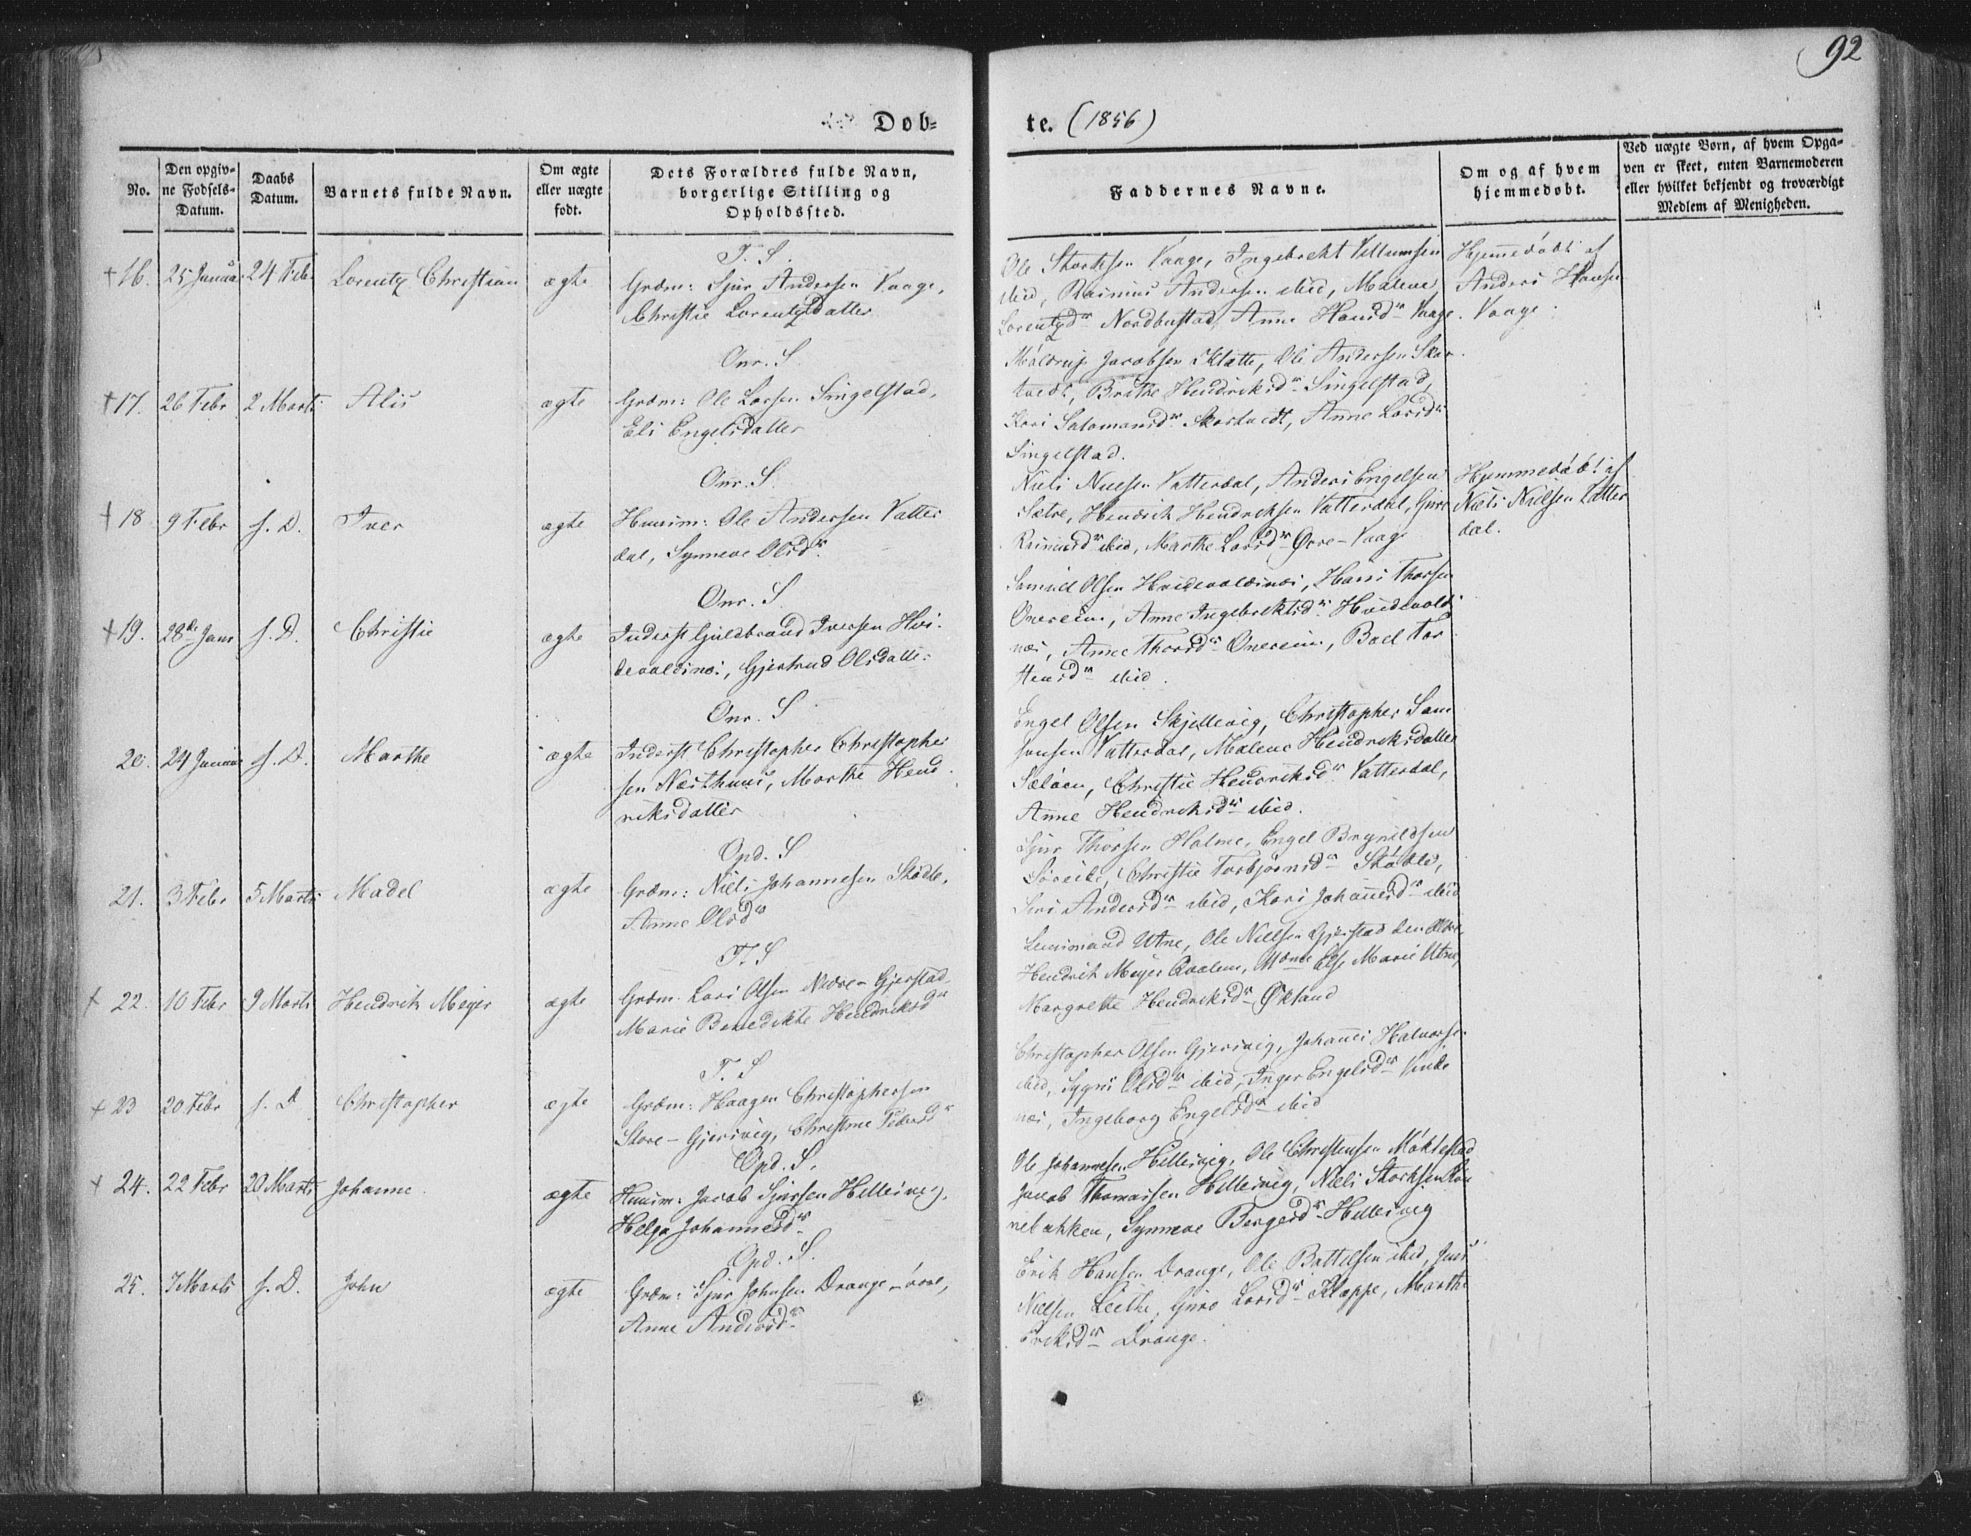 92
Døb=
te. (1856)
No.
Den opgiv=
ne Fødsels=
Datum.
Daabs
Datum.
Barnets fulde Navn.
Om ægte
eller uægte
født.
Dets Forældres fulde Navn,
borgerlige Stilling og
Opholdssted.
Faddernes Navne.
Om og af hvem
hjemmedøbt.
Ved uægte Børn, af hvem Opga=
ven er skeet, enten Barnemoderen
eller hvilket bekjendt og troværdigt
Medlem af Menigheden.
T. S.
+ 16. 25 Januar 24 Febr Lorentz Christian ægte Grdm: Sjur Andersen Vaage,
Christie Lorentzdatter
Ole Storksen Vaage, Ingebreht Villumsen
ibid, Rasmus Andersen ibid, Malene
Lorentzdr Nordbustad, Anne Hansdr Vaage.
Hjemmedøbt af
Anders Hansen
Vaage.
Onr. S.
+ 17. 26 Febr 2 Marts Alis ægte Grdm: Ole Larsen Singelstad,
Eli Engelsdatter
Jacobsen Klatte, Ole Andersen Skar
tvedt, Brithe Hendriksdr Singelstad,
Kari Salamonsdr Skartvedt, Anne Larsdr
Singelstad.
Onr. S.
+ 18 9 Febr s. D. Iver ægte Huusm: Ole Andersen Vatter
dal, Synneve Olsdr.
Niels Nielsen Vatterdal, Anders Engelsen
Sætre, Hendrik Hendriksen Vatterdal, Guro
Rasmusdr ibid, Marthe Larsdr Øvre-Vaage
Hjemmedøbt af
Niels Nielsen Vatter
dal.
Onr. S
+ 19. 28de Janr s. D. Christie ægte Inderst Guldbrand Iversen Hvi-
devoldsnæs, Gjertrud Olsdatter
Samuel Olsen Hvidevoldsnæs, Hans Thorsen
Onereim, Anne Ingebrektsdr Hvidevolds
næs, Anne Thorsdr Onereim, Boel Tor
ibid.
Onr. S
20. 24 Januar s. D. Marthe ægte Inderst Christopher Christopher
sen Næsthuus, Marthe Hend
riksdatter
Engel Olsen Skjellevig, Christopher Sam
sonsen Vatterdal, Malene Hendriksdatter
Sæløen, Christie Hendriksdr Vatterdal,
Anne Hendriksdr ibid.
Opd. S
21. 3 Febr 5 Marts Madel ægte Grdm: Niels Johannesen Skødle,
Anne Olsdr
Sjur Thorsen Holme, Engel Brynildsen
Christie Torbjørnsdr Skødle,
Siri Andersdr ibid, Kari Johannesdr ibid
T. S
+ 22. 10 Febr 9 Marts Hendrik Meyer ægte Grdm. Lars Olsen Nedre-Gjerstad
Marie Benedikte Hendriksdr
Lensmand Utne, Ole Nielsen Gjerstad den
Hendrik Meyer Qvalen, Mdme Else Marie Utne,
Margrethe Hendriksdr Økland
T. S
+ 23 20 Febr s. D Christopher ægte Grdm: Haagen Christophersen
Store-Gjersvig, Christine Pedersdr
Christopher Olsen Gjersvig, Johannes Halvorsen
ibid, Sygni Olsdr ibid, Inger Engelsdr Vinde
næs, Ingeborg Engelsdr ibid
Opd. S.
+ 24. 22 Febr 20 Marts Johanne ægte Huusm: Jacob Sjursen Hillesvig,
Helga Johannesdr
Ole Johannesen Hillesvig, Ole Christensen Møkkestad
Jacob Thomassen Hillesvig, Niels Storksen Røn
nebakken, Synneve Bergesdr Hillesvig
Opd. S.
25. 7 Marts s. D. John ægte Grdm: Sjur Johnsen Drange-øvre,
Anne Andersdr
Erik Hansen Drange, Ole Battelsen ibid, Jens
Nielsen Liethe, Guro Larsdr Kloppe, Marthe
Eriksdr Drange.